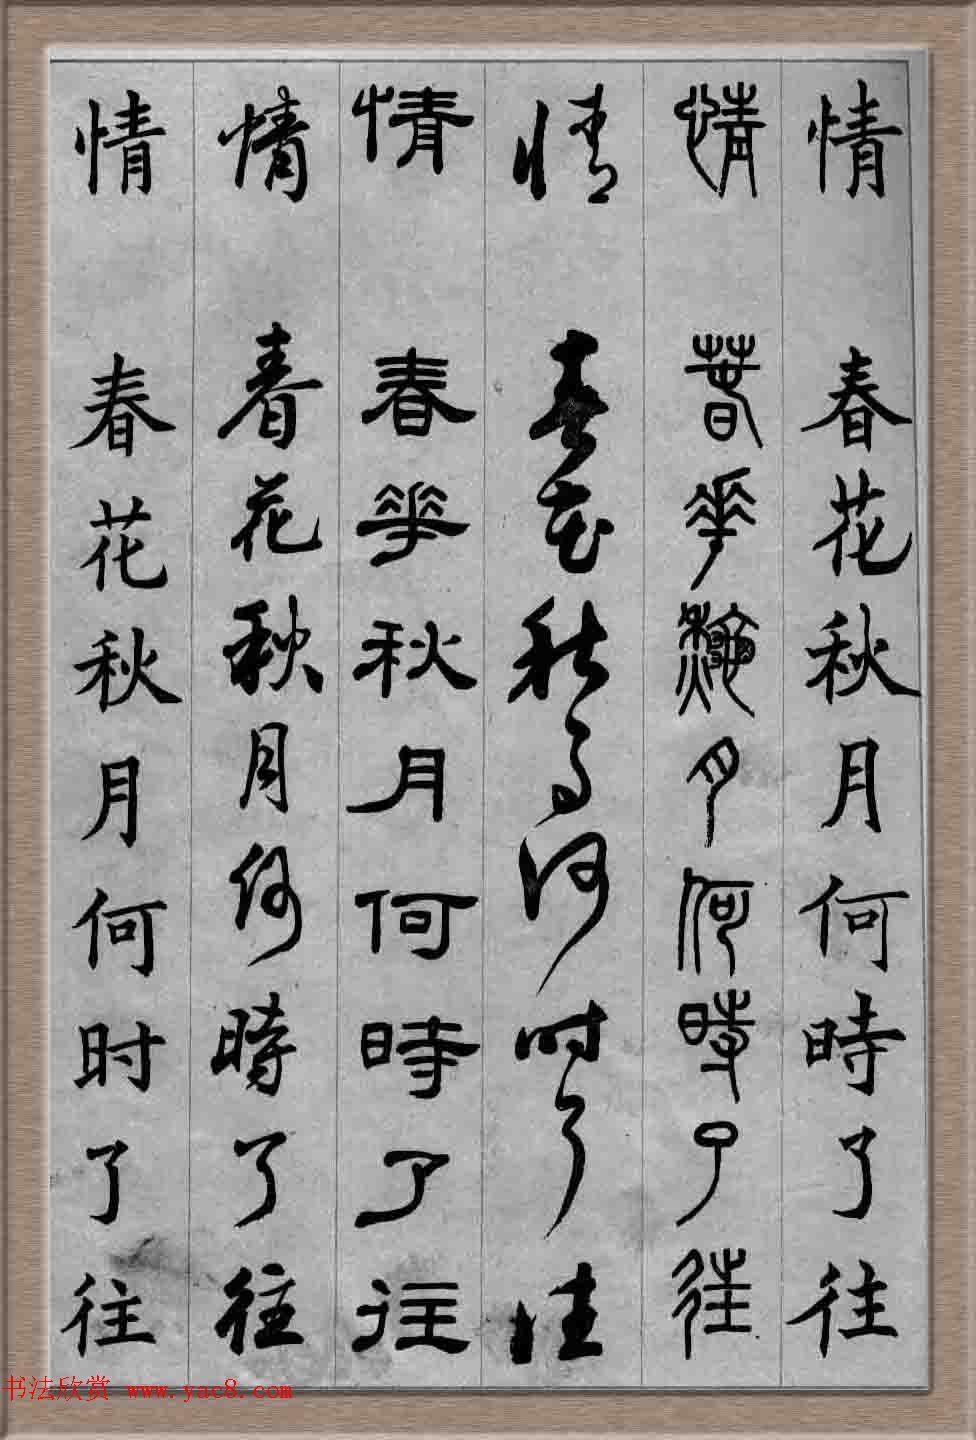 情 春花秋月何時了往
情 萅華龝月何時了往
情 春花秋月何时了往
情 春華秋月何時了往
情 春花秋月何時了往
情 春花秋月何时了往
书法欣赏 www.yac8.com